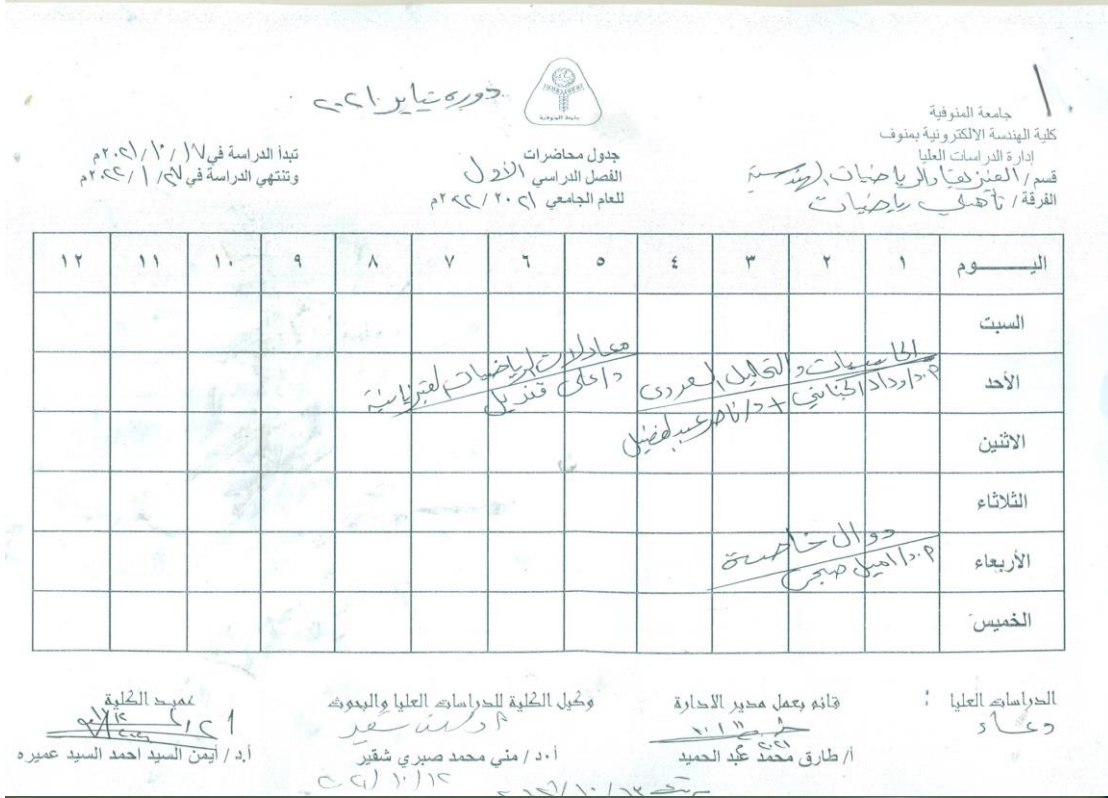 دوره يناير ٢٠٢١
جامعة المنوفية
جامعة المنوفية
كلية الهندسة الالكترونية بمنوف
إدارة الدراسات العليا
قسم / الفيزيقا والرياضيات الهندسية
الفرقة / تأهيلى رياضيات
جدول محاضرات
الفصل الدراسي الأول
للعام الجامعي ٢٠٢١ / ٢٠٢٢م
تبدأ الدراسة في ١٧ / ١٠ / ٢٠٢١م
وتنتهي الدراسة في / ١ / ٢٠٢٢م
اليــــــوم ١ ٢ ٣ ٤ ٥ ٦ ٧ ٨ ٩ ١٠ ١١ ١٢
السبت
الأحد
الحاسبات والتحليل العددى
م.د/ وداد الجناينى + د/ ناصر عبد
معادلات الرياضيات الفيزيائية
د/ على قنديل
الاثنين
الثلاثاء
الأربعاء
دوال خاصة
م.د/ اميل صبحى
الخميس
الدراسات العليا :
دعاء
قائم بعمل مدير الادارة
٢٠٢١
أ/ طارق محمد عبد الحميد
وكيل الكلية للدراسات العليا والبحوث
أ.د / مني محمد صبري شقير
٢٠٢١/١٠/١٢
عميد الكلية
أ.د / أيمن السيد احمد السيد عميره